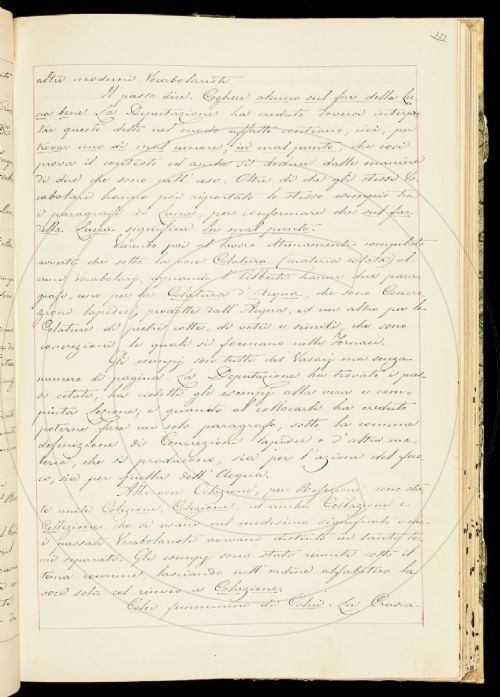 357
altri moderni Vocabolaristi
Il passo dice. Cogliere alcuno sul far della Lu
na bene. La Deputazione ha creduto doversi interpe
trar questo detto nel modo affatto contrario, cioè, per
trovar uno di mal umore, in mal punto, che così
prova il contesto ed anche si deduce dalle maniere
di dire che sono nell' uso. Oltre di che gli stessi Vo
cabolari hanno poi riportato lo stesso esempio tra
i paragrafi di Luna, per confermare che sul far
della Luna significa in mal punto.
Venendo poi al lavoro ultimamente compilato
avverte che sotto la voce Colatura (materia colata) al
cuni Vocabolarj, il Alberti hanno due para
grafi, uno per la Colatura d'Acqua, che sono Concre
zioni lapidee, prodotte dall'Acqua, ed un altro per le
Colature di pietre cotte, di vetri e simili, che sono
concrezioni le quali si formano nelle Fornaci.
Gli esempj son tutti del Vasarj ma senza
numero di pagina. La Deputazione ha trovato i pas
si citati, ha ridotti gli esempj alla vera e com
piuta Lezione, e quando al collocarli ha creduto
poterne fare un solo paragrafo, sotto la comune
definizione di Concrezione lapidea o d'altra ma
teria, che si producono, sia per l'azione del fuo
co, sia per quella dell'Acqua.
Alle voci Colazione, per Refezione sono sta
te unite Colezione, Colizione, ed anche Collazione e
Collezione, che si usano nel medesimo significato e che
i passati Vocabolaristi avevano distinti in tante te
me separate. Gli esempj sono stati riuniti sotto il
tema comune lasciando nell'ordine alfabetico la
voce sola col rinvio a Colazione.
Colei femminino di Colui. La Crusca